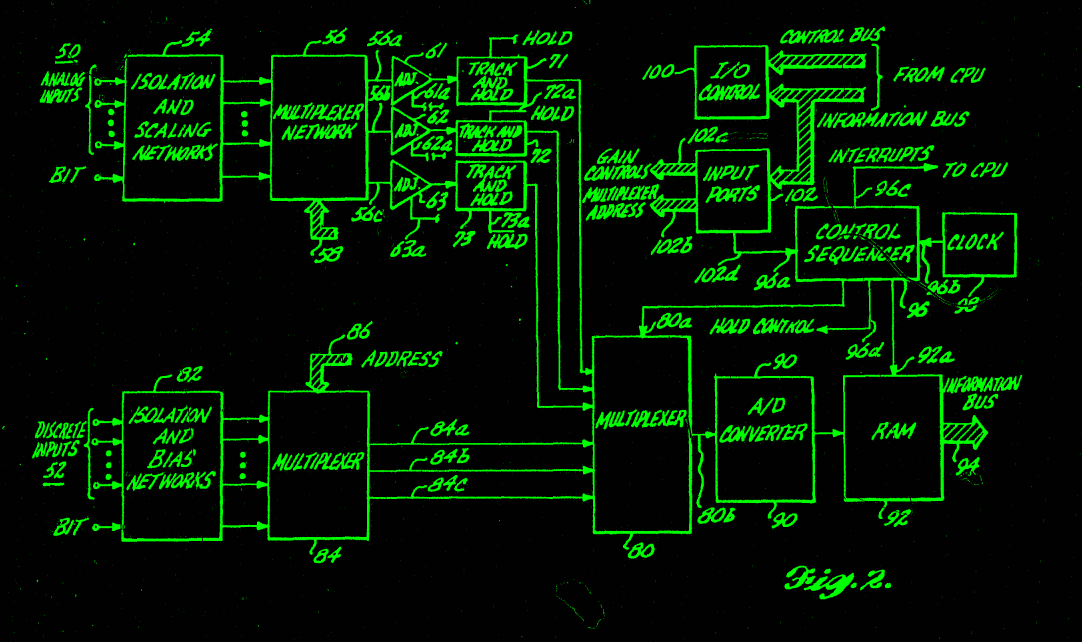 50
ANALOG
INPUTS
BIT
54
ISOLATION
AND
SCALING
NETWORKS
56
MULTIPLEXER
NETWORK
58
56a
56b
56c
61
ADJ.
61a
62
ADJ.
62a
ADJ.
63
63a
HOLD
71
TRACK
AND
HOLD
72a
HOLD
TRACK AND
HOLD
72
TRACK
AND
HOLD
73
73a
HOLD
100
I/O
CONTROL
CONTROL BUS
FROM CPU
INFORMATION BUS
102c
GAIN
CONTROLS
MULTIPLEXER
ADDRESS
102b
INPUT
PORTS
102
102d
INTERRUPTS
TO CPU
96c
CONTROL
SEQUENCER
96a
96b
96
CLOCK
98
80a
HOLD CONTROL
96d
92a
86
ADDRESS
82
ISOLATION
AND
BIAS
NETWORKS
DISCRETE
INPUTS
52
BIT
MULTIPLEXER
84
84a
84b
84c
MULTIPLEXER
80
80b
90
A/D
CONVERTER
90
RAM
92
INFORMATION
BUS
94
Fig. 2.